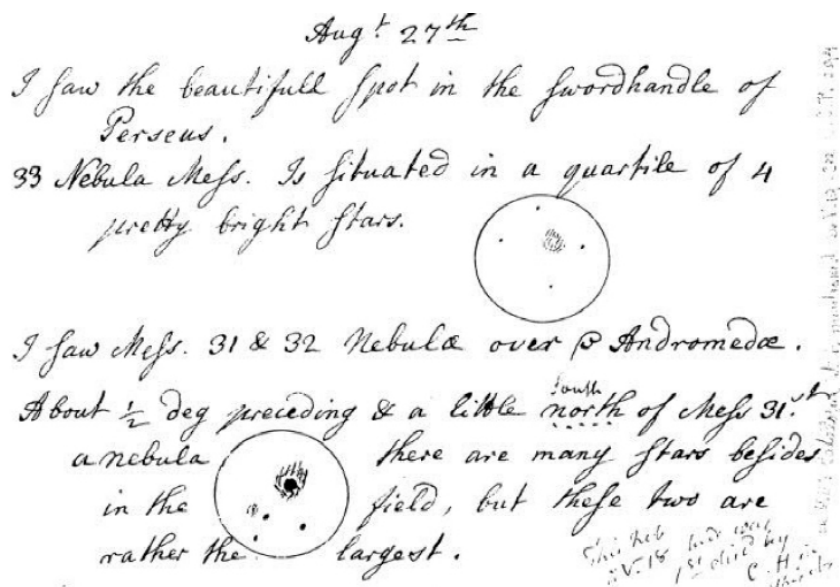 Aug.t 27th
I saw the beautifull spot in the swordhandle of
Perseus.
33 Nebula Mess. Is situated in a quartile of 4
pretty bright stars.
I saw Mess. 31 & 32 Nebulæ over β Andromedæ.
south
About ½ deg preceding & a little north of Mess 31.st
a nebula there are many stars besides
in the field, but these two are
rather the largest.
This Neb
V.18 was
1st by
C.H in